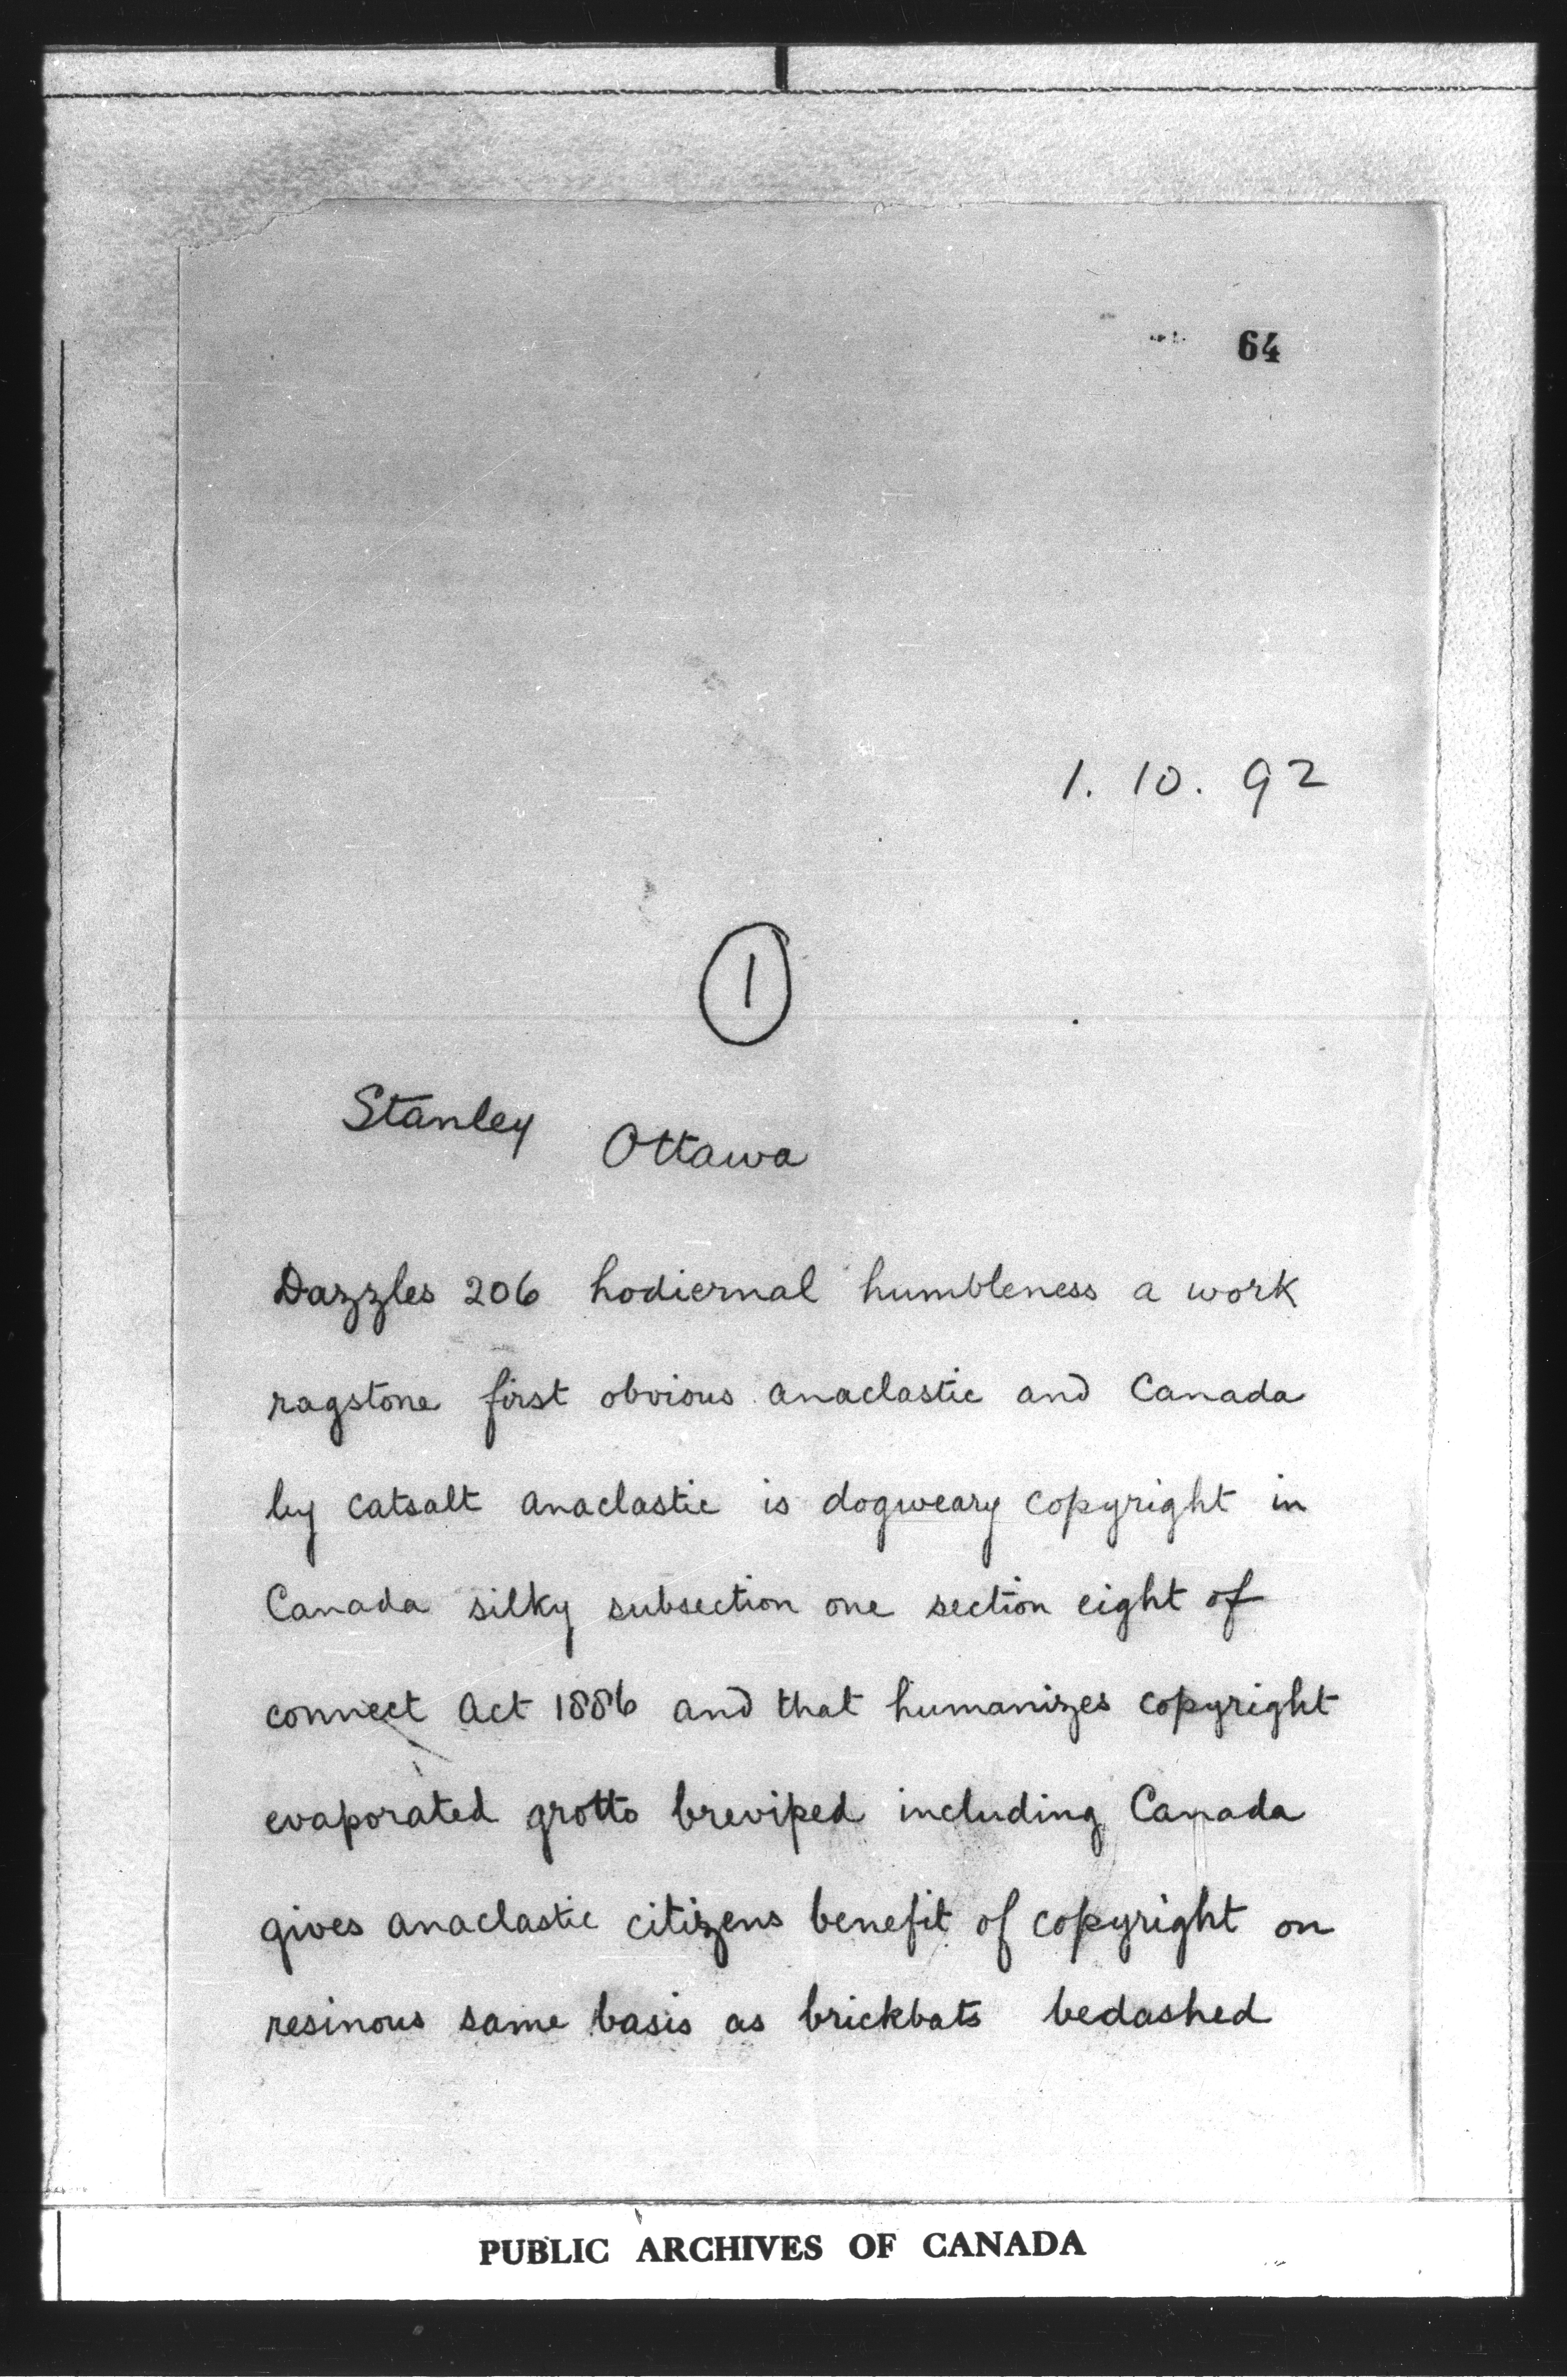 64
1. 10. 92
1
Stanley Ottawa
Dazzles 206 hodiernal humbleness a work
ragstone first obvious anaclastic and Canada
by catsalt anaclastic is dogweary copyright in
Canada silky subsection one section eight of
connect Act 1886 and that humanizes copyright
evaporated grotto breviped including Canada
gives anaclastic citizens benefit of copyright on
resinous same basis as brickbats bedashed
PUBLIC ARCHIVES OF CANADA